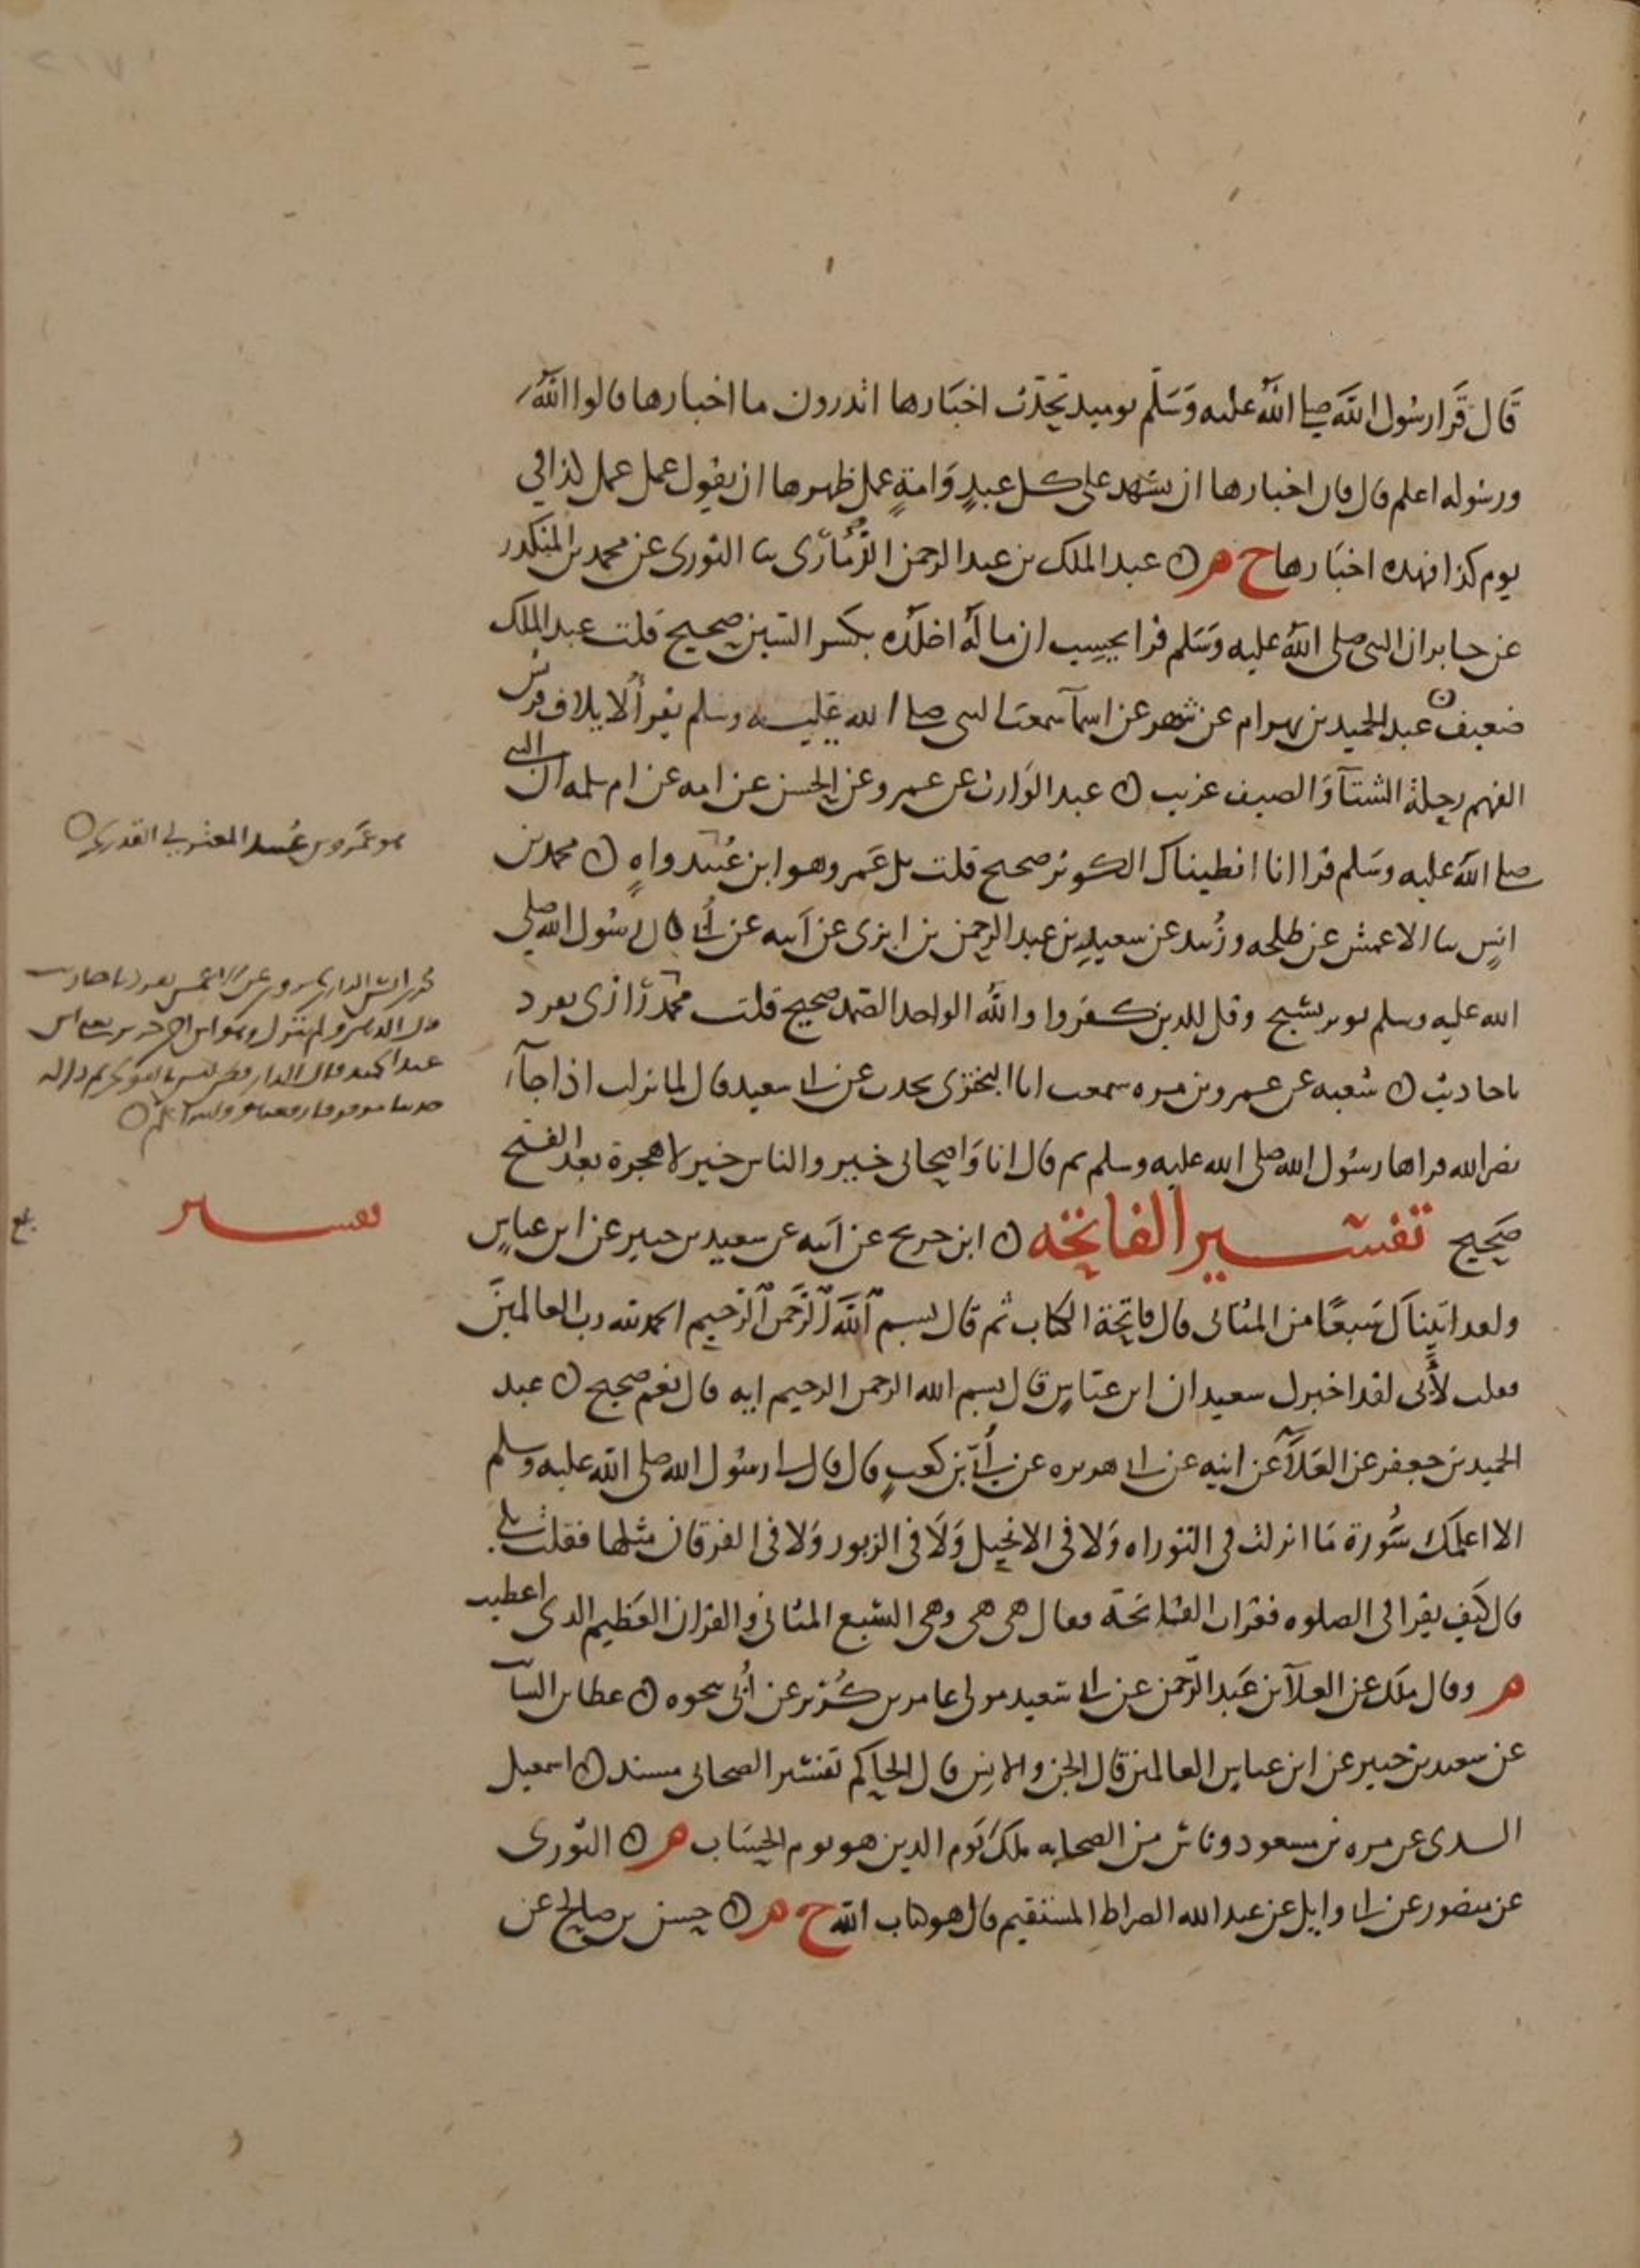 قَال قَرَا رسُول اللَّه صلى اللَّه عليه وَسَلَّم يوميد تُحَدّث اخبَارها اتدرون ما اخبارها قالوا اللَّه
ورسُوله اعلم قال فان اخبارها ان تشهد على كل عبدٍ وَامةٍ عمل ظهرها ان يقول عمل عمل كذا في
يوم كذا فهذه اخبَارها ح م ن عبد الملك بن عبد الرحمن الذَّمَاري نا الثوري عن محمد بن المنكدر
عن جابر ان النبى صلى اللَّه عليه وَسَلم قرا يحسِب ان ماله اخلده بكسر السين صحيح قلت عبد الملك
ضعيف ن عبد الحميد بن بهرام عن شهر عن اسمآ سمعت النبى صلى الله عليه وسلم يقرأ لايلاف قريش
الفهم رحلة الشتآ وَالصيف غريب ن عبد الوَارث عن عمرو عن الحسن عن امه عن ام سلمه ان النبى
صلى اللَّه عليه وسَلم قرا انا انطيناك الكوثر صحيح قلت بل عَمرو هو ابن عُبَيد واهٍ ن محمد بن
انسٍ نا الاعمش عن طلحه وزُبيد عن سعيدِ بن عبد الرحمن بن ابزى عن اَبيه عن أُبَي قال رسُول اللَّه صلى
الله عليه وسلم يوتر بسَبح وقل للذين كفروا واللَّه الواحد الصّمد صحيح قلت محمد رَازي تفرد
باحاديث ن شعبه عن عمرو بن مره سمعت ابا البختري يحدث عن ابى سعيد قال لما نزلت اذا جآ
نصر الله قراها رسُول اللَّه صلى الله عليه وسلم ثم قال انا وَاصحابى خيرٌ والناس خير لا هجرة بعد الفتح
صَحيح تفسير الفاتحَه ن ابن جريج عن اَبيه عن سعيد بن جبير عن ابن عباسٍ
ولقد اتَينَاك سَبعًا من المثانى قال فاتحَة الكتاب ثم قال بسم اللَّه الرَّحمن الرَّحيم الحمد لله رب العالمينَ
فقلت لأَبى لقد اخبرك سعيد ان ابن عبَّاسٍ قال بسم الله الرحمن الرحيم ايه قال نعم صحيح ن عبد
الحميد بن جعفر عن العَلآ عن ابيه عن ابى هريره عن أُبَيّ بن كعبٍ قال قال لى رسُول اللَّه صلى اللَّه عليه وسلم
الا اعلمك سُورة مَا انزلت في التوراه وَلا في الانجيل وَلَا في الزبور وَلا في الفرقان مثلها فقلت بلى
قال كَيف تقرا في الصلوه فقرات الفاتحَة فقال هى هى وهى السَّبع المثانى والقران العَظيم الذى اعطيت
م وقال ملك عن العلآ بن عَبد الرَّحمن عن ابى سَعيد مولى عامر بن كُرَيز عن أُبَي نحوه ن عطا بن السآئب
عن سعيد بن جبير عن ابن عباس العالمين قال الجن والانس قال الحاكم تفسير الصحابى مسند ن اسمعيل
السدى عن مره بن مسعود وناس من الصحابه ملك يَوم الدين هو يوم الحِسَاب م ن الثورى
عن منصور عن ابى وايل عن عبد الله الصراط المستقيم قال هو كتاب اللَّه ح م ن حسن بن صالح عن
هو عَمرو بن عُبيد المعتزلي القدري
تفسير
بلغ